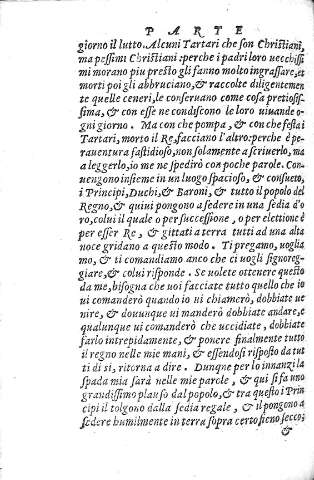 PARTE
giorno il lutto. Alcuni Tartari che son Christiani,
ma pessimi Christiani: perche i padri loro uecchissi
mi morano piu presto gli fanno molto ingrassare, et
morti poi gli abbruciano, & raccolte diligentemen
te quelle ceneri, le conseruano come cosa pretiosis-
sima, & con esse ne condiscono le loro uiuande o-
gni giorno. Ma con che pompa, & con che festa i
Tartari, morto il Re, facciano l'altro: perche è pe-
rauentura fastidioso, non solamente a scriuerlo, ma
a leggerlo, io me ne spedirò con poche parole. Con-
uengono insieme in un luogo spacioso, & consueto,
i Principi, Duchi, & Baroni, & tutto il popolo del
Regno, & quiui pongono a sedere in una sedia d'o-
ro, colui il quale o per successione, o per elettione è
per esser Re, & gittati a terra tutti ad una alta
uoce gridano a questo modo. Ti pregamo, uoglia
mo, & ti comandiamo anco che ci uogli signoreg-
giare, & colui risponde. Se uolete ottenere questo
da me, bisogna che uoi facciate tutto quello che io
ui comanderò quando io ui chiamerò, dobbiate ue
nire, & douunque ui manderò dobbiate andare, e
qualunque ui comanderò che uccidiate, dobbiate
farlo intrepidamente, & ponere finalmente tutto
il regno nelle mie mani, & essendosi risposto da tut
ti di si, ritorna a dire. Dunque per lo innanzi la
spada mia sarà nelle mie parole, & qui si fa uno
grandissimo plauso dal popolo, & tra questo i Prin
cipi il tolgono dalla sedia regale, & il pongono a
sedere humilmente in terra sopra certo fieno secco:
&